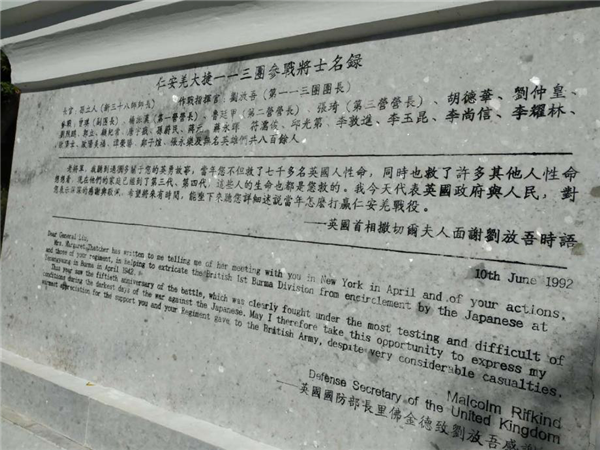 仁安羌大捷一一三團参戰將士名錄
長官：孫立人（新三十八師師長） 作戰指揮官：劉放吾（第一一三團團長）
（副團長）、楊振漢（第一營營長）、魯廷甲（第二營營長）、張琦（第三營營長）、胡德華、劉仲皇、
蔣元、蔣永暉、符濡俊、邱光第、李敦進、李玉昆、李尚信、李耀林、
鄭子煊、張永樂及無名英雄們共八百餘人
老將軍，我聽到過關於您的英勇故事，當年您不但救了七千多名英國人性命，同時也救了許多其他人性命
想想看，現在他們的家庭已經到了第三代、第四代，這些人的生命也都是您救的。我今天代表英國政府與人民，對
您表示深深的感謝與敬況，希望將來有時間，能坐下來聽您詳細述説當年怎麼打贏仁安羌戰役。
—英國首相撒切爾夫人面謝劉放吾時語
10th June 1992
Dear General Liu,
Mrs. Margaret Thatcher has written to me telling me of her meeting with you in New York in April and of your actions,
and those of your regiment, in helping to extricate the British 1st Burma Division from encirclement by the Japanese at
Yenangyaung in Burma in April 1942.
This year saw the fiftieth anniversary of the battle, which was clearly fought under the most testing and difficult of
conditions during the darkest days of the war against the Japanese. May I therefore take this opportunity to express my
warmest appreciation for the support you and your Regiment gave to the British Army, despite very considerable casualties.
Malcolm Rifkind
Defense Secretary of the United Kingdom
—英國國防部長里佛金德致劉放吾感謝